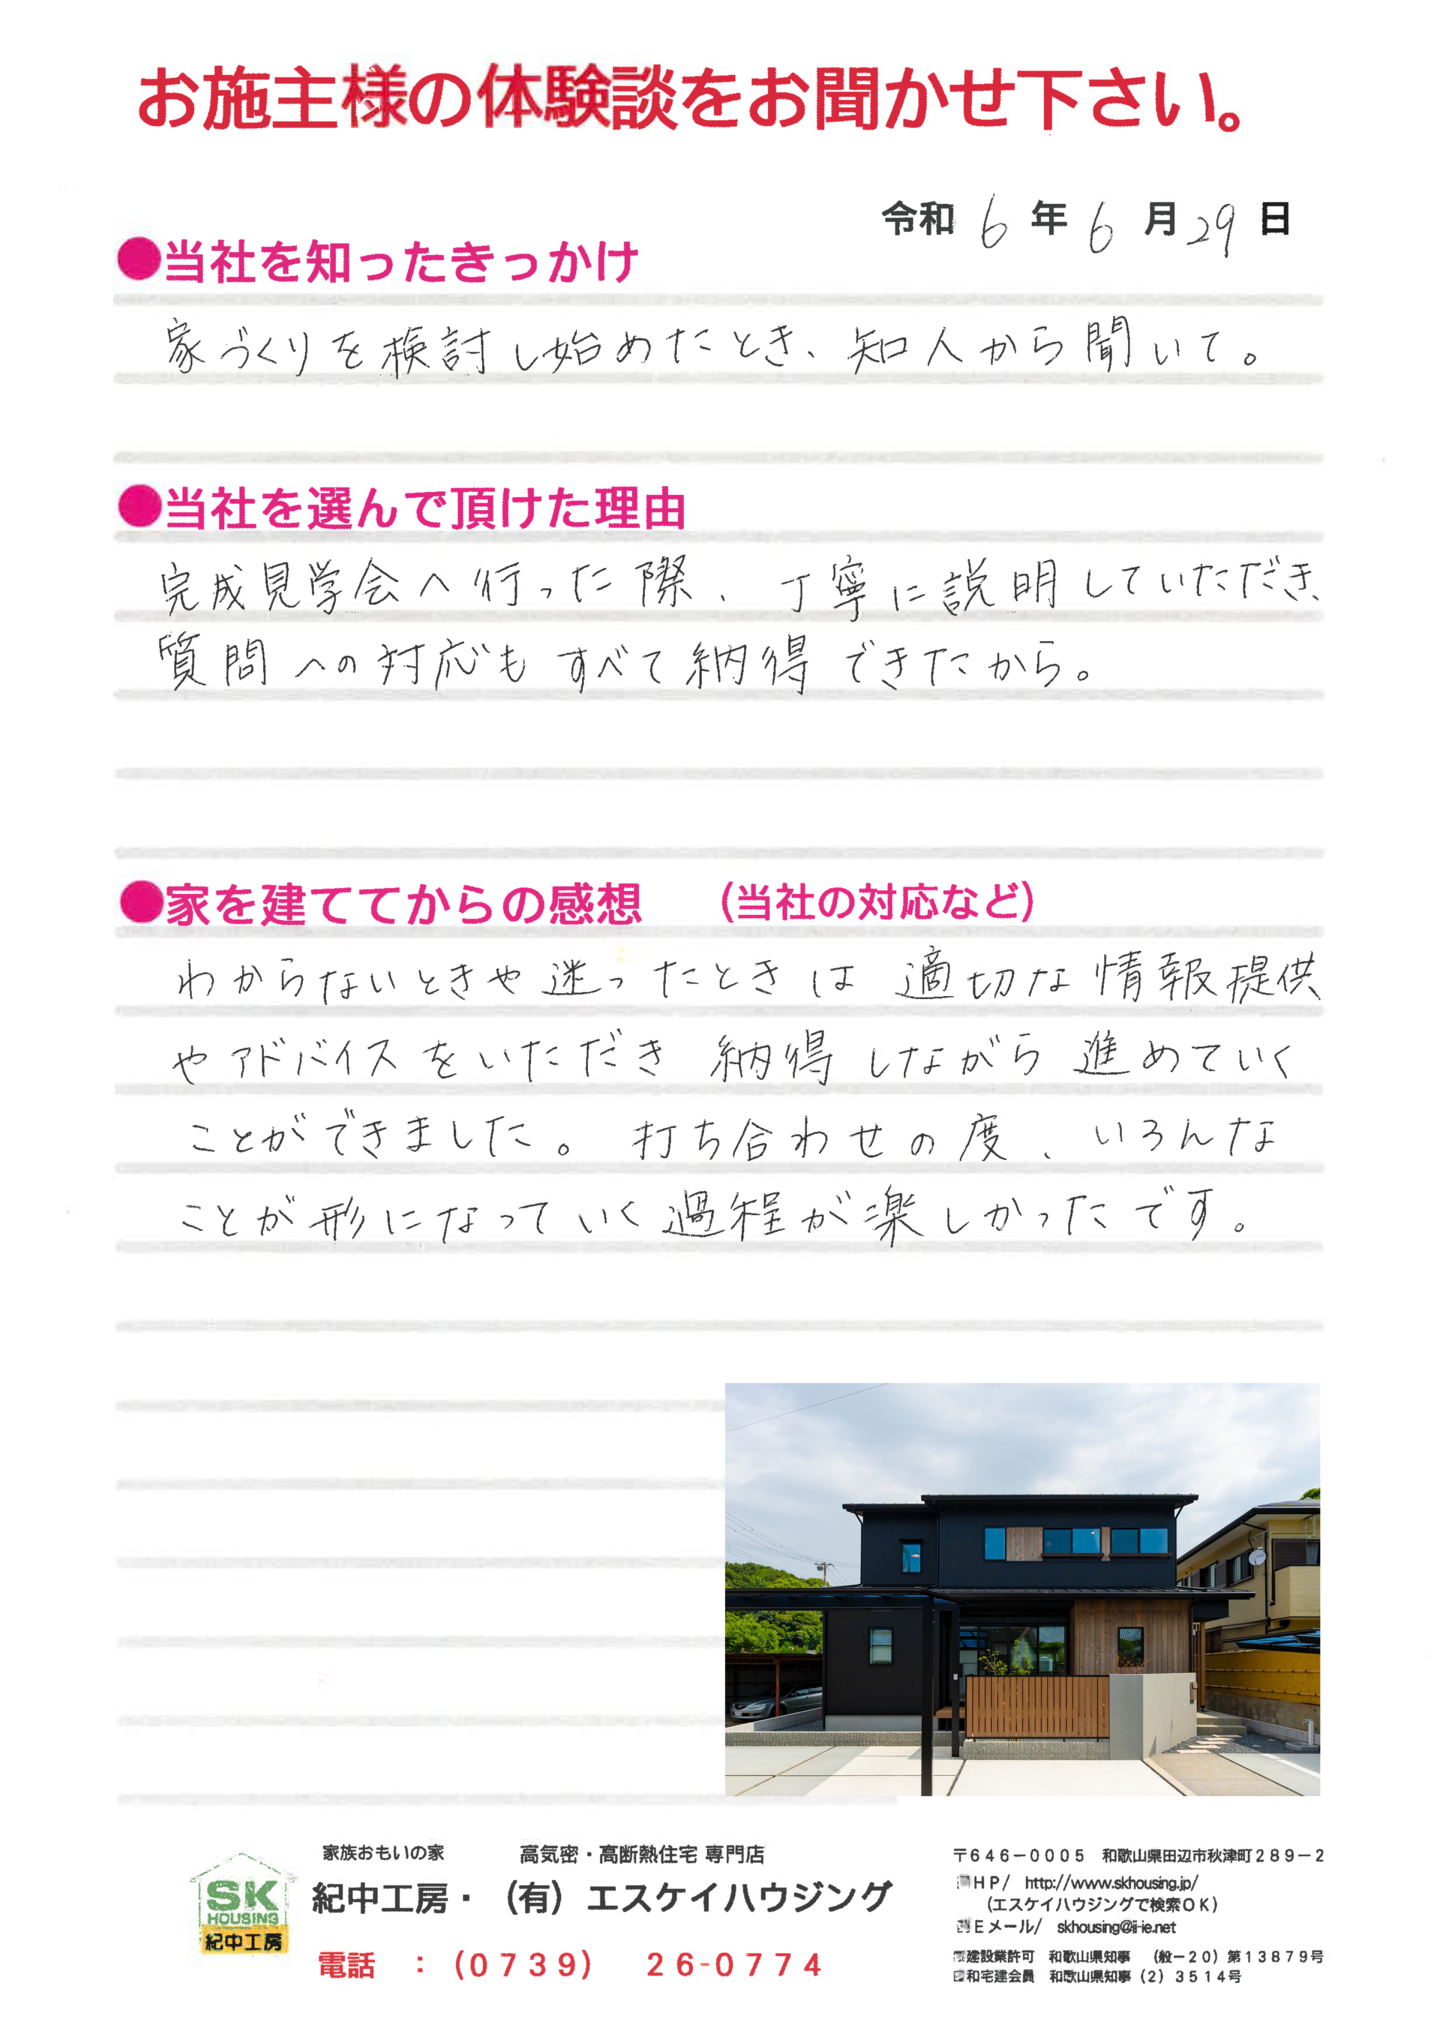 お施主様の体験談をお聞かせ下さい。
令和 6 年 6 月 29 日
●当社を知ったきっかけ
家づくりを検討し始めたとき、知人から聞いて。
●当社を選んで頂けた理由
完成見学会へ行った際、丁寧に説明していただき、
質問への対応もすべて納得できたから。
●家を建ててからの感想 (当社の対応など)
わからないときや迷ったときは適切な情報提供
やアドバイスをいただき納得しながら進めていく
ことができました。打ち合わせの度、いろんな
ことが形になっていく過程が楽しかったです。
SK
HOUSING
紀中工房
家族おもいの家 高気密・高断熱住宅 専門店
紀中工房・(有)エスケイハウジング
電話 :(0739) 26-0774
〒646-0005 和歌山県田辺市秋津町289-2
HP/ http://www.skhousing.jp/
(エスケイハウジングで検索OK)
Eメール/ skhousing@ii-ie.net
建設業許可 和歌山県知事 (般-20)第13879号
和宅建会員 和歌山県知事(2)3514号